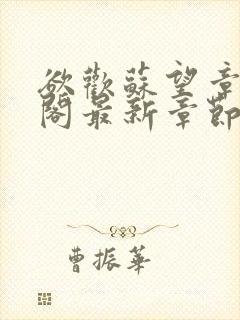 欲歡蘇望章
閣最新章節
曹振華